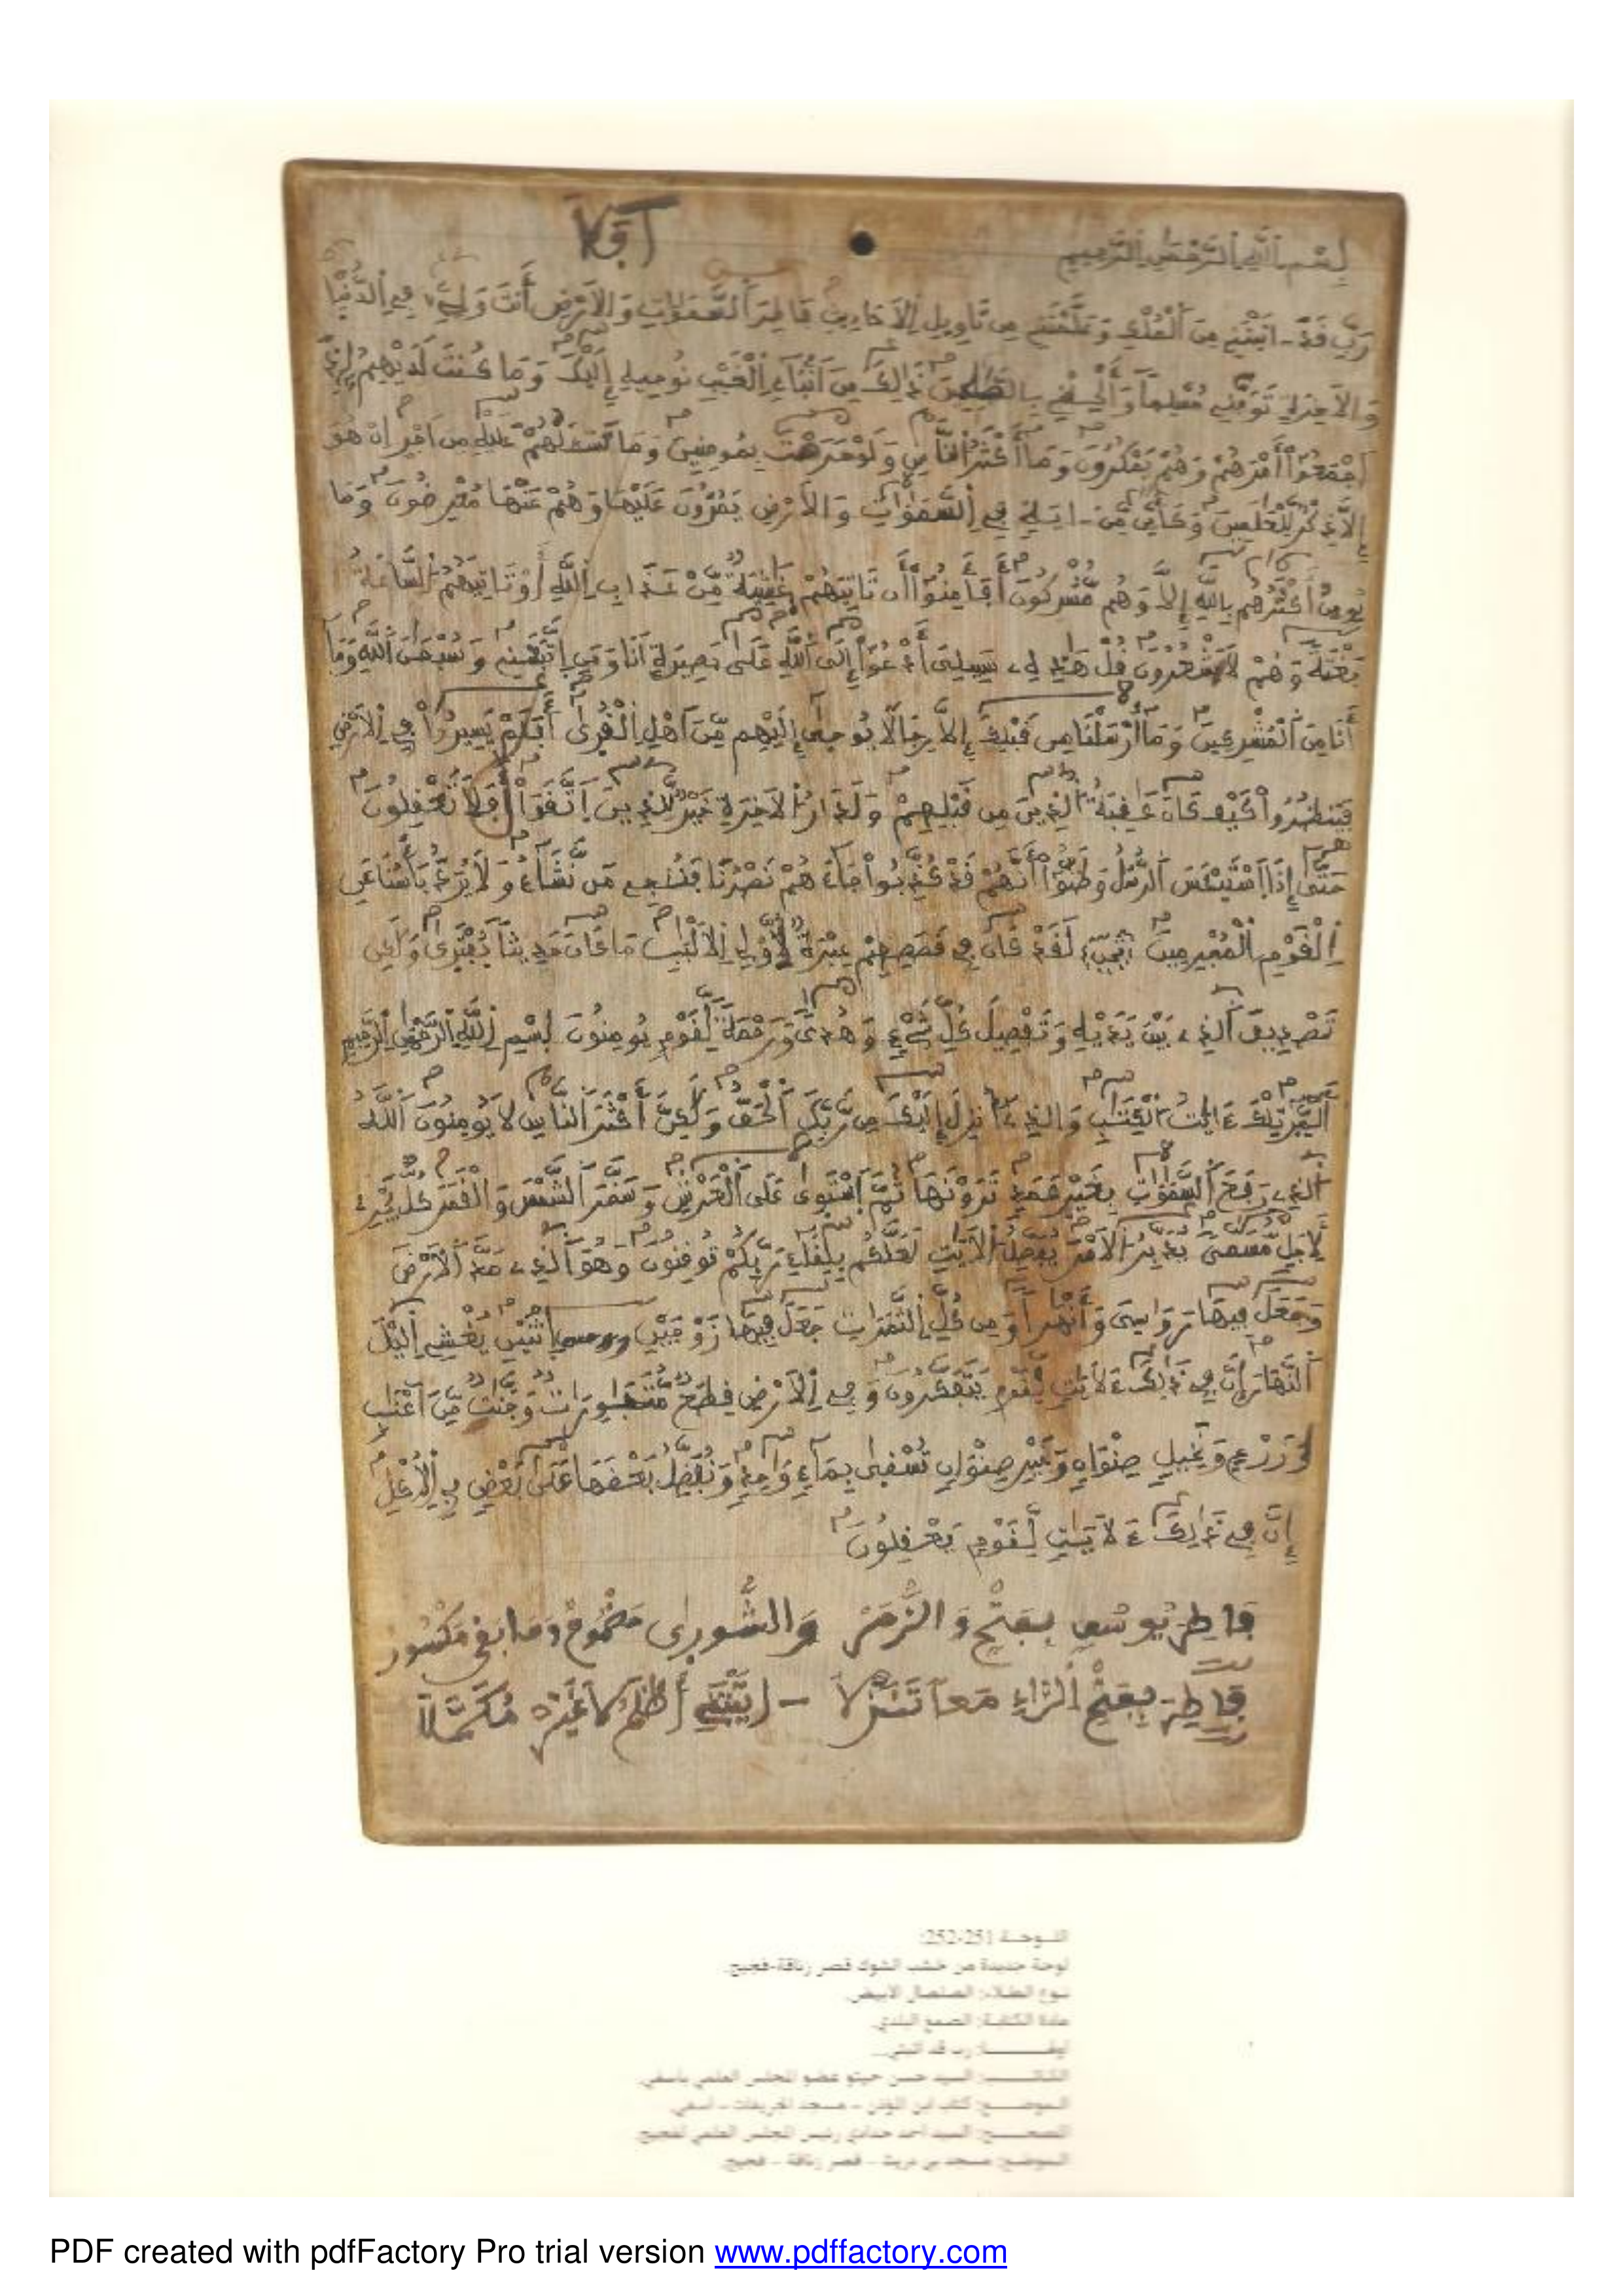 بسم الله الرحمن الرحيم
رب قد ـاتيتني من الملك وعلمتني من تاويل الاحاديث فاطر السموات والارض أنت ولي في الدنيا
والاخرة توفني مسلما وألحقني بالصلحين ذالك من أنباء الغيب نوحيه إليك وما كنت لديهم إذ
اجمعوا أمرهم وهم يمكرون وما أكثر الناس ولو حرصت بمومنين وما تسئلهم عليه من اجر ان هو
إلا ذكر للعلمين وكأين من ـاية في السموات والارض يمرون عليها وهم عنها معرضون وما
يومن أكثرهم بالله إلا وهم مشركون أفأمنوا أن تاتيهم غشية من عذاب الله أو تاتيهم الساعة
بغتة وهم لا يشعرون قل هذه سبيلي أدعوا إلى الله على بصيرة انا ومن اتبعني وسبحن الله وما
أنا من المشركين وما أرسلنا من قبلك إلا رجالا يوحى إليهم من اهل القرى أفلم يسيروا في الارض
فينظروا كيف كان عقبة الذين من قبلهم ولدار الاخرة خير للذين اتقوا أفلا تعقلون
حتى إذا استيئس الرسل وظنوا أنهم قد كذبوا جاءهم نصرنا فننجي من نشاء ولا يرد بأسنا عن
القوم المجرمين لقد كان في قصصهم عبرة لأولي الالبب ما كان حديثا يفترى ولكن
تصديق الذي بين يديه وتفصيل كل شيء وهدى ورحمة لقوم يومنون بسم الله الرحمن الرحيم
المر تلك ءايت الكتب والذي أنزل إليك من ربك الحق ولكن أكثر الناس لا يومنون الله
الذي رفع السموات بغير عمد ترونها ثم استوى على العرش وسخر الشمس والقمر كل يجري
لأجل مسمى يدبر الامر يفصل الايت لعلكم بلقاء ربكم توقنون وهو الذي مد الارض
وجعل فيها روسي وأنهرا ومن كل الثمرات جعل فيها زوجين اثنين يغشي اليل
النهار إن في ذالك ءلايت لقوم يتفكرون وفي الارض قطع متجورات وجنت من اعنب
وزرع ونخيل صنوان وغير صنوان تسقى بماء وحد ونفضل بعضها على بعض في الأكل
إن في ذالك ءلايت لقوم يعقلون
فاطر يوسف بفتح والزمر والشورى مضموم وما بقي مكسور
فاطر بفتح الراء معا تنزلا
اللوحة 251-252:
لوحة جديدة من خشب الشوك قصر زناقة-فجيج.
نوع الطلاء: الصلصال الأبيض.
مادة الكتابة: الصمغ البلدي.
رب قد اتيتني...
السيد حسن حيتو عضو المجلس العلمي بآسفي.
السيد أحمد حدادي رئيس المجلس العلمي لفجيج.
PDF created with pdfFactory Pro trial version www.pdffactory.com